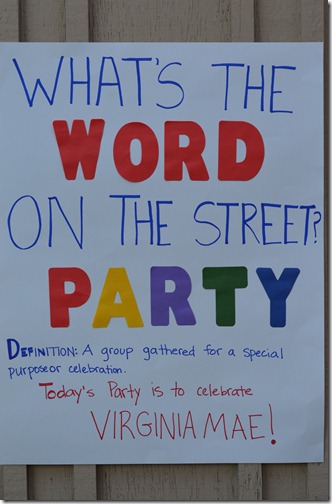 WHAT'S THE
WORD
ON THE STREET?
PARTY
DEFINITION: A group gathered for a special
purpose or celebration.
Today's Party is to celebrate
VIRGINIA MAE!